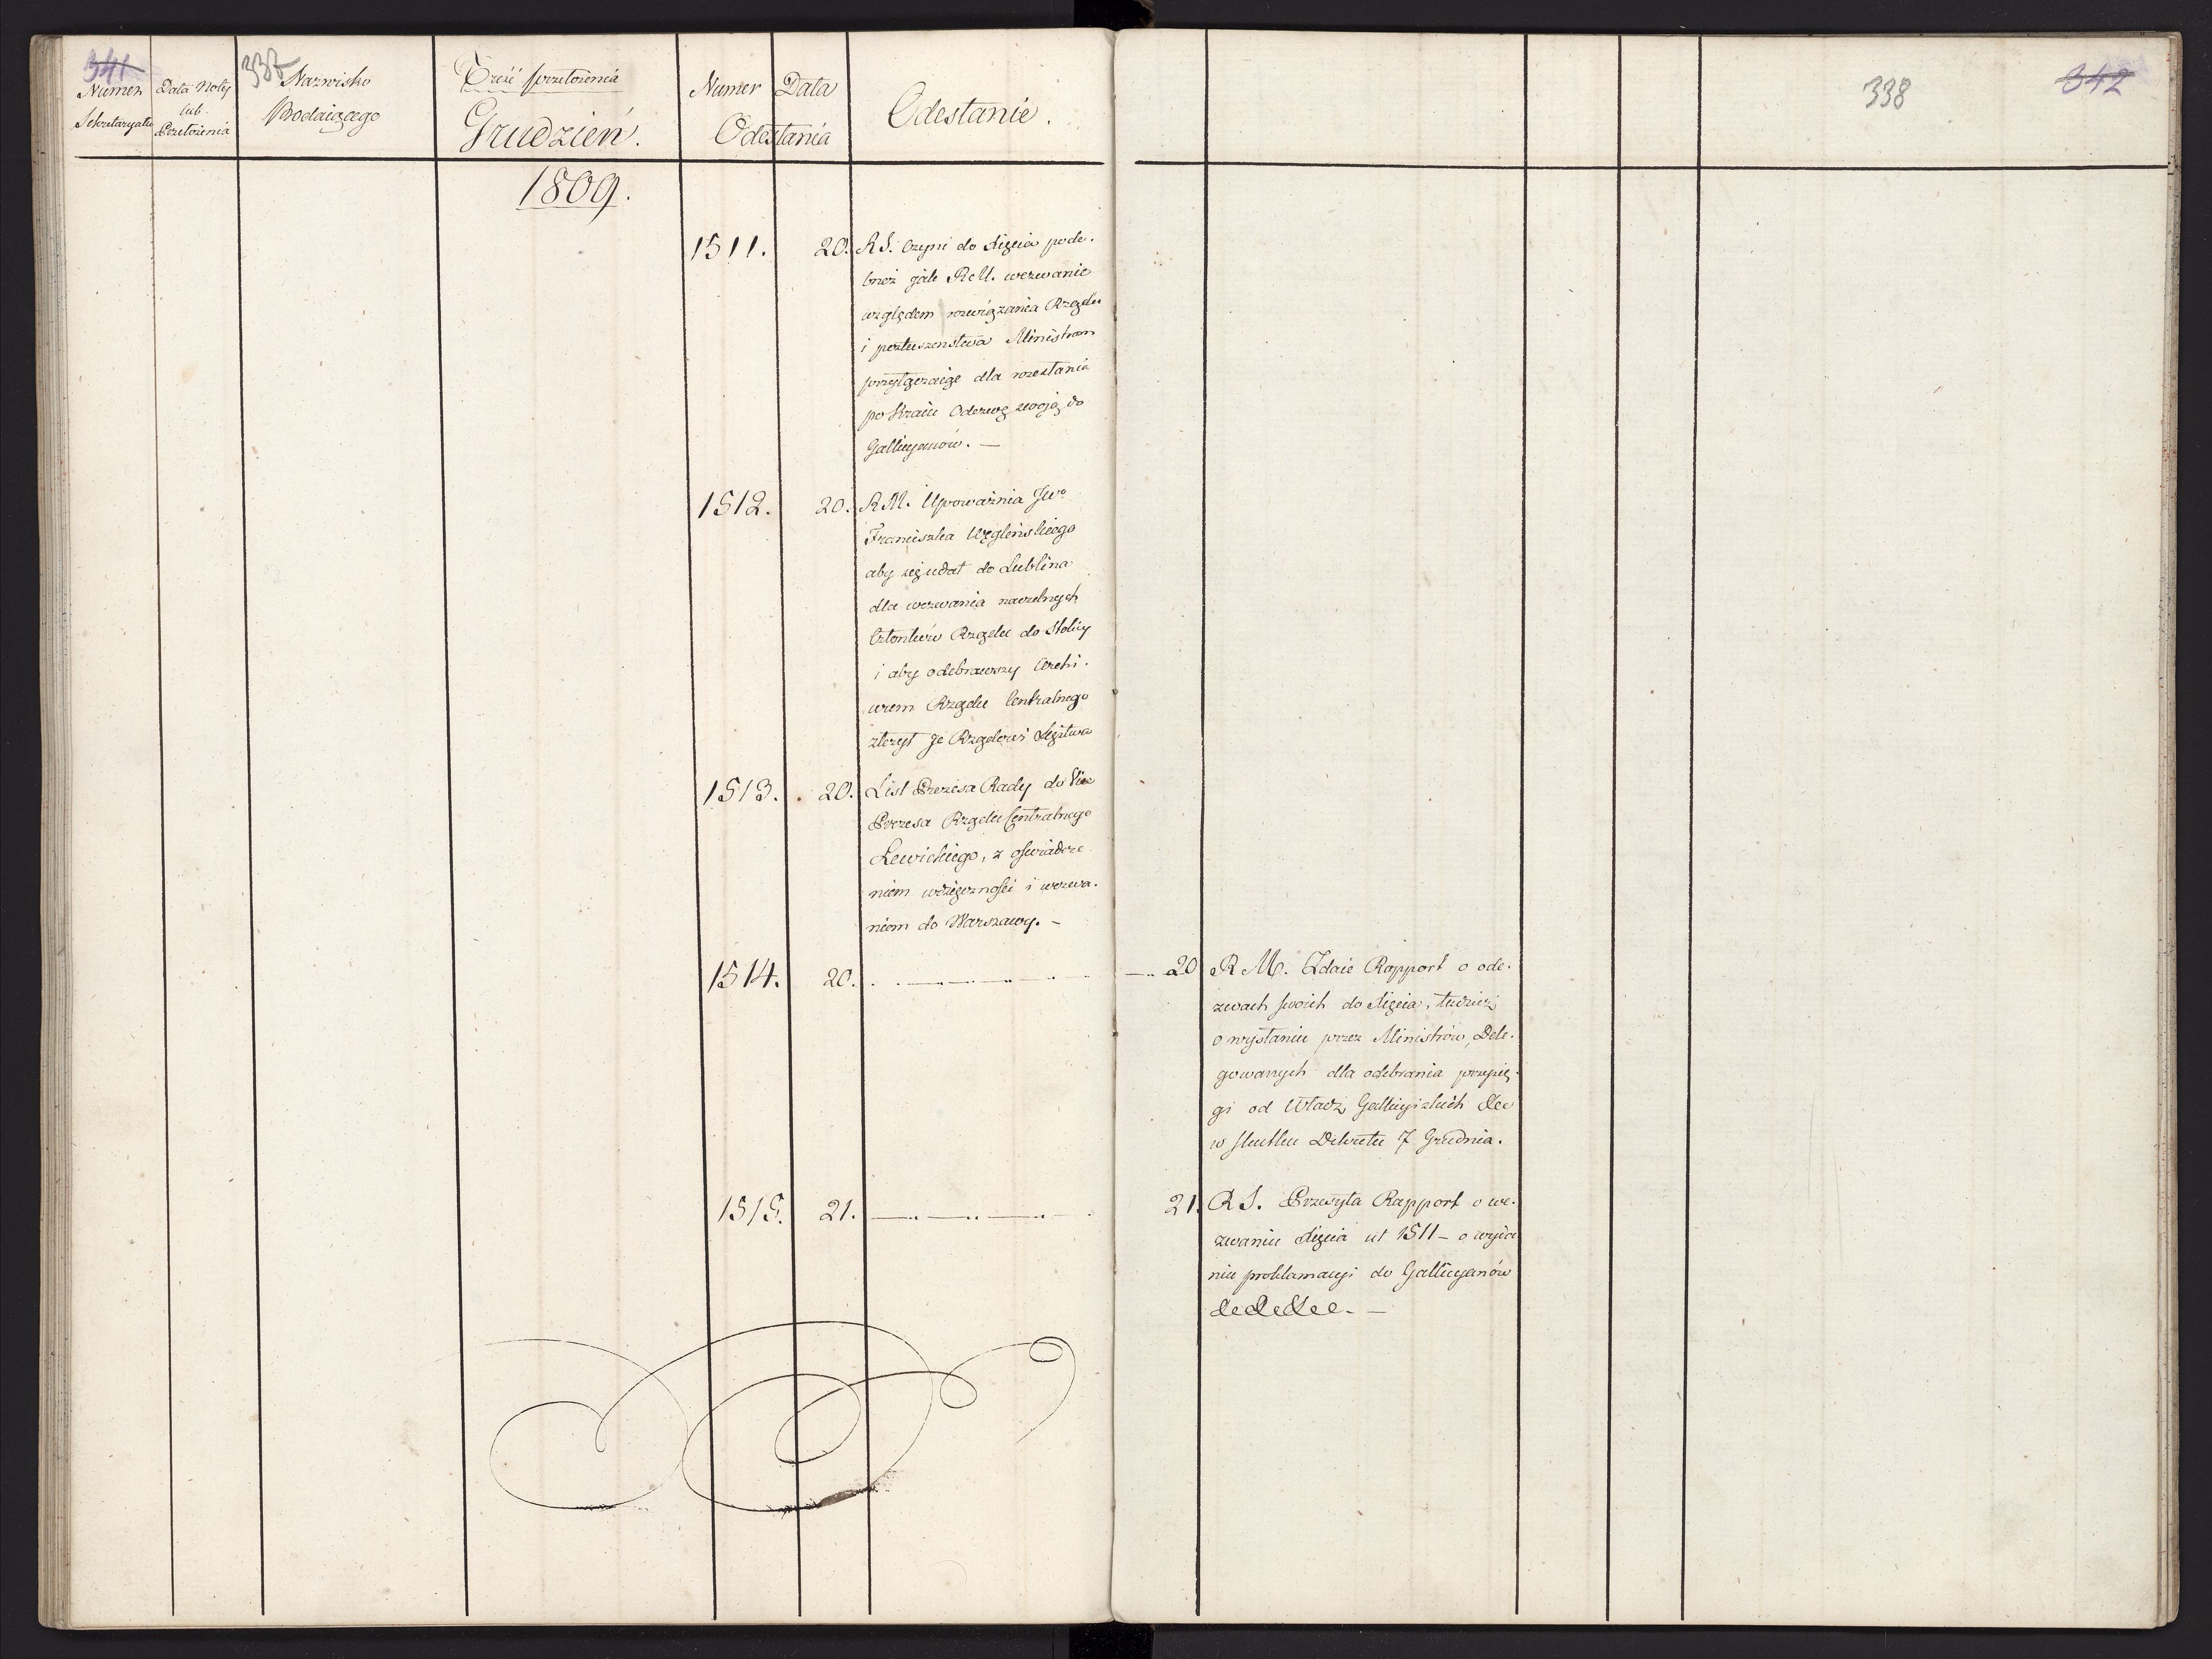 341
337
Numer
Sekretaryatu
Data Noty
lub
Przełożenia
Nazwisko
Podaiącego
Treść przełożenia
Grudzień.
Numer Data
Odesłania
Odesłanie.
1809.
1511. 20. R S. Czyni do Xięcia podo-
bneż jak R M. wezwanie
względem rozwiązania Rządu
i posłuszenstwa Ministrom
przyłączaiąc dla rozesłania
po Kraiu Odezwę swoją do
Gallicyanów. —
1512. 20. R M. Upoważnia JW°
Franciszka Węgleńskiego
aby się udał do Lublina
dla wezwania naczelnych
Członków Rządu do Stolicy
i aby odebrawszy Archi-
wum Rządu Centralnego
złożył je Rządowi
1513. 20. List Prezesa Rady do Vice
Prezesa Rządu Centralnego
Lewickiego, z oświadcze
niem wdzięczności i wezwa-
niem do Warszawy. —
1514. 20.
1515. 21.
338
342
20 R M. Zdaie Rapport o ode-
zwach swoich do Xięcia, tudzież
o wysłaniu przez Ministrów, Dele-
gowanych dla odebrania przysię-
gi od Władz Gallicyiskich &c
w skutku Dekretu 7 Grudnia.
21. R S. Przesyła Rapport o we-
zwaniu Xięcia ut 1511 — o wyda
niu proklamacyi do Gallicyanów
&c &c &c. —